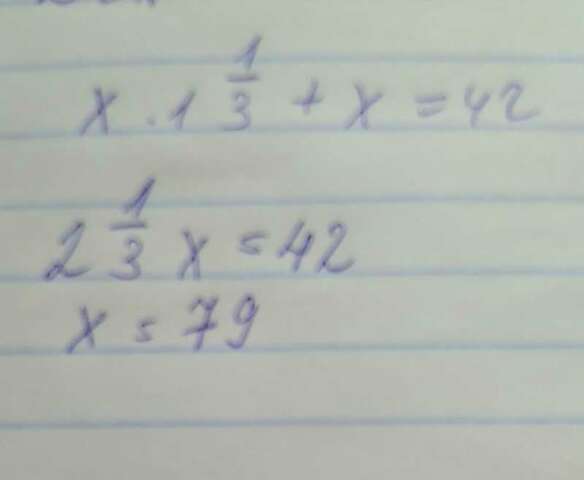 x · 1 1/3 + x = 42
2 1/3 x = 42
x = 79